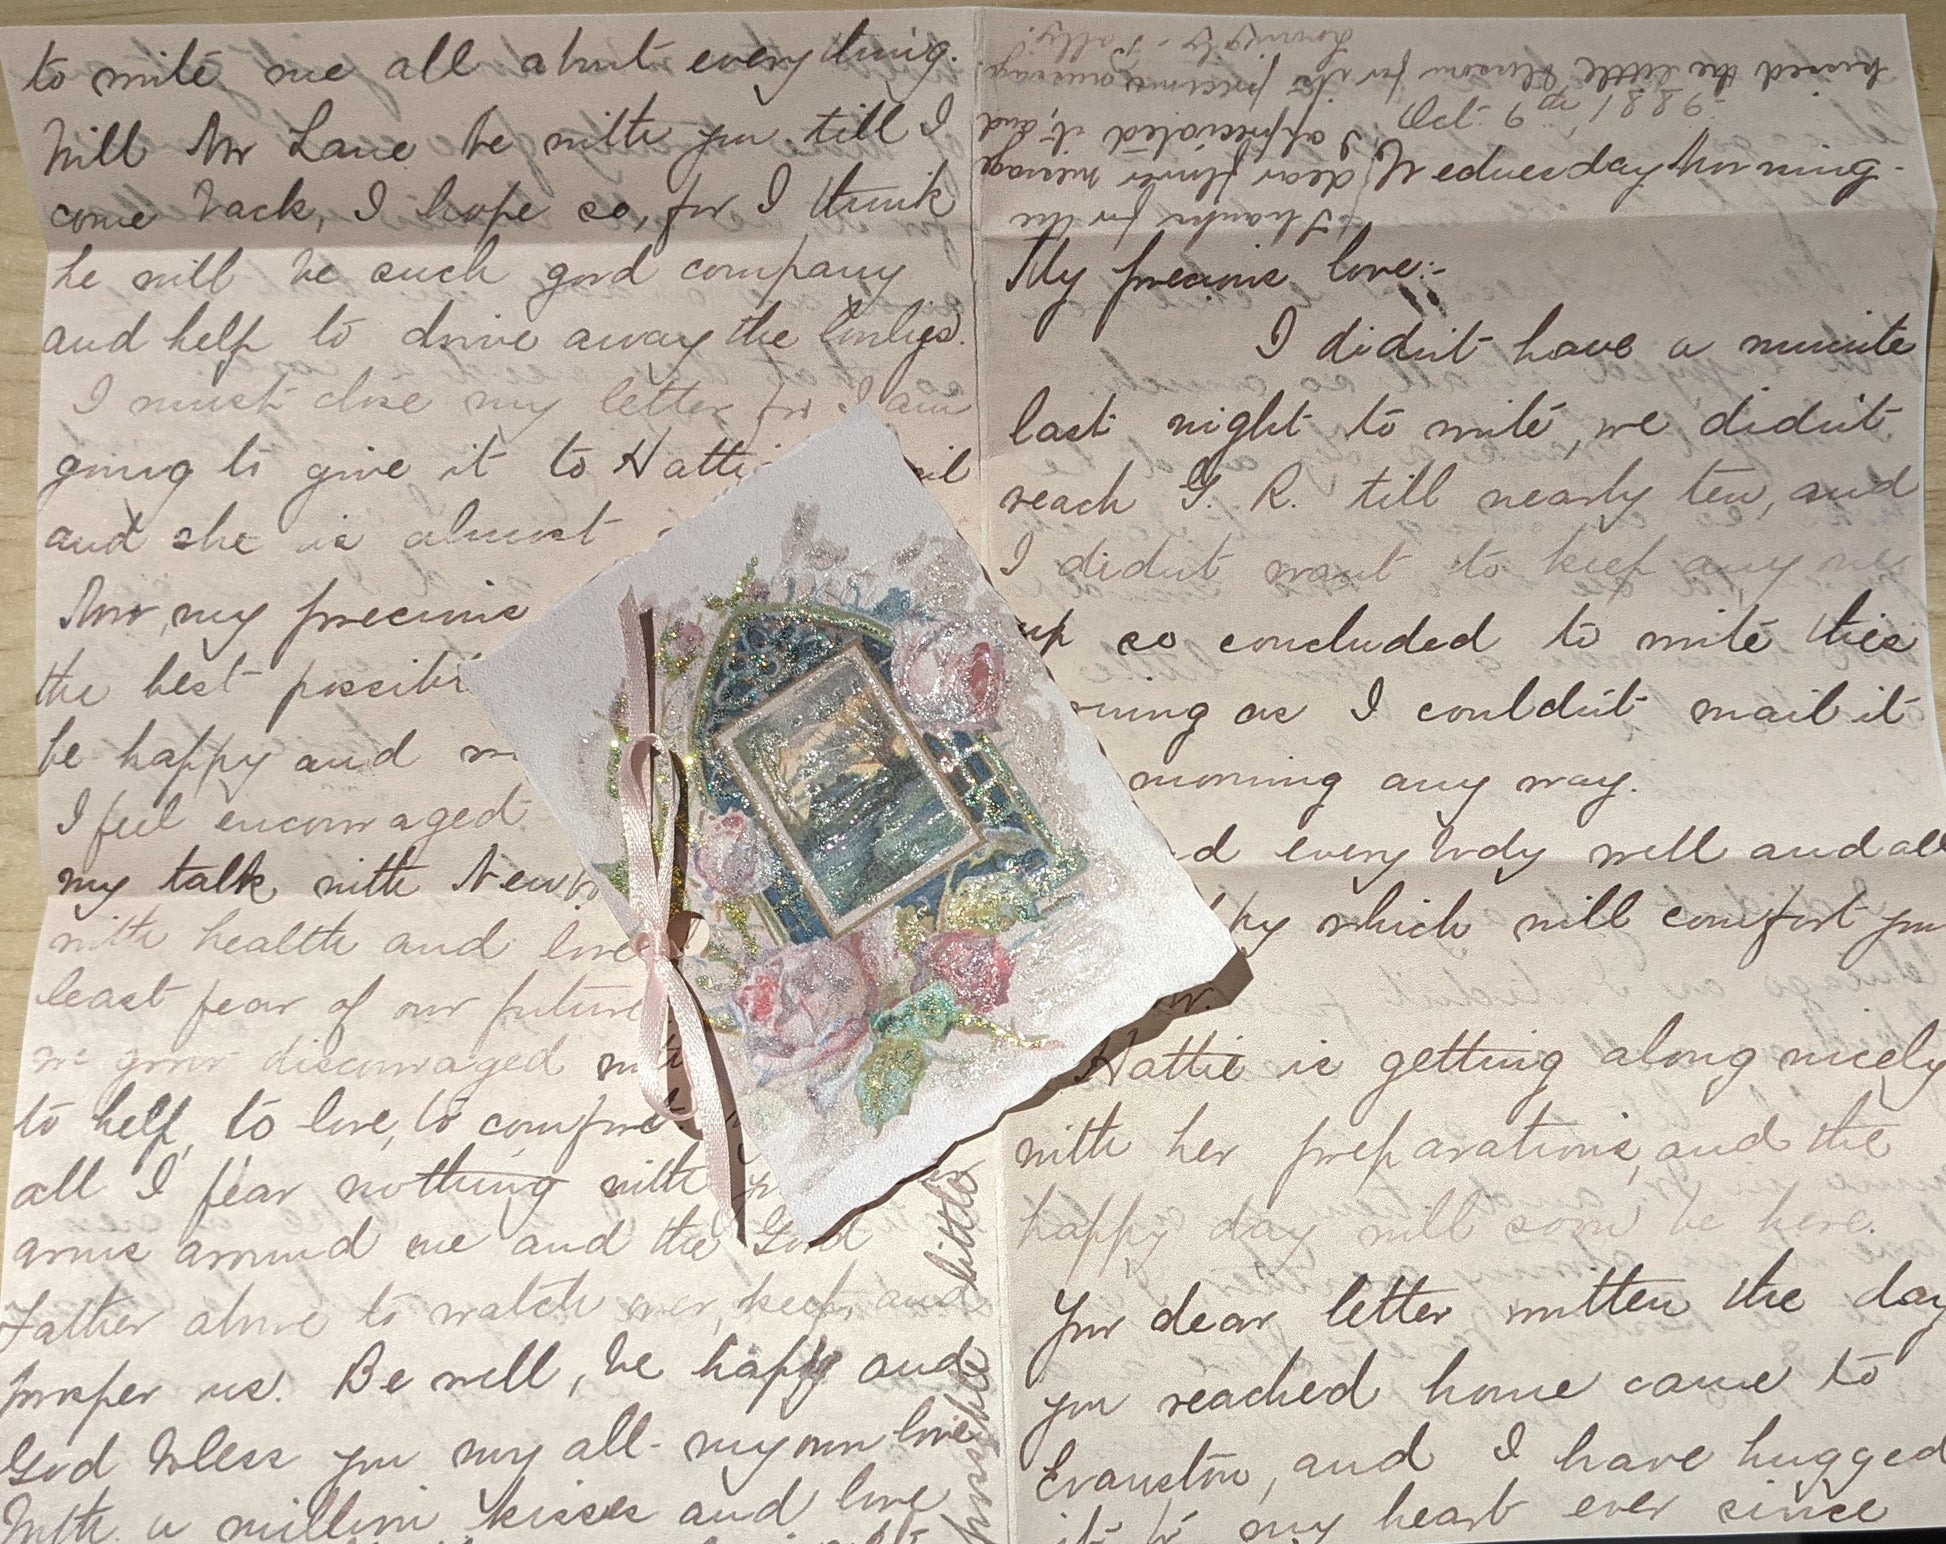 to write me all about everything.
Will Mr Lane be with you till I
come back, I hope so, for I think
he will be such good company
and help to drive away the
I must close my letter, for I am
going to give it to Hattie
and she is almost
Now, my precious
the best possibl
be happy and
I feel encouraged
my talk with
with health and love
least fear of our future
we grow discouraged with
to help, to love, to comfort
all I fear nothing with
arms around me and the Good
Father above to watch over, keep and
prosper us. Be well, be happy and
God bless you my all - my own love
With a million kisses and love
possible little
Thanks for the
dear flower message
I appreciated it, and
kissed the little blossom for its precious message
Lovingly - Polly.
Oct. 9th, 1889-
Wednesday Morning-
My precious love:-
I didn't have a minute
last night to write, we didn't
reach G. R. till nearly ten, and
I didn't want to keep any one
up so concluded to write this
as I couldn't mail it
morning any way.
everybody well and all
which will comfort you
Hattie is getting along nicely
with her preparations, and the
happy day will soon be here.
Your dear letter written the day
you reached home came to
Evanston, and I have hugged
it to my heart ever since